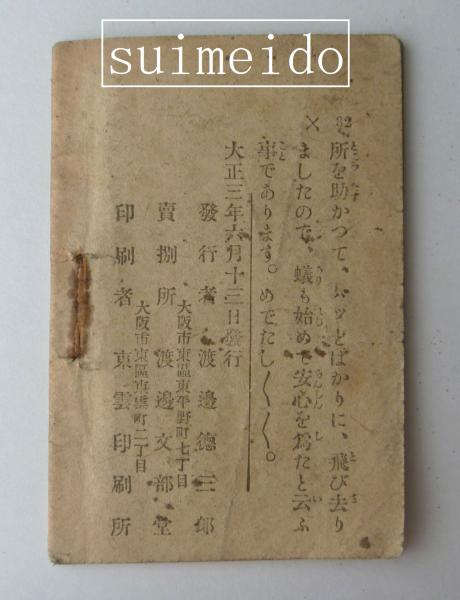 suimeido
32
所を助かつて、ハッとばかりに、飛び去り
ましたので、蟻も始めて安心を為たと云ふ
事であります。めでたし〱〱。
大正三年六月十三日發行
發行者 渡邊德三郎
大阪市東區東平野町七丁目
賣捌所 渡邊文部堂
大阪市東區東雲町二丁目
印刷者 東雲印刷所